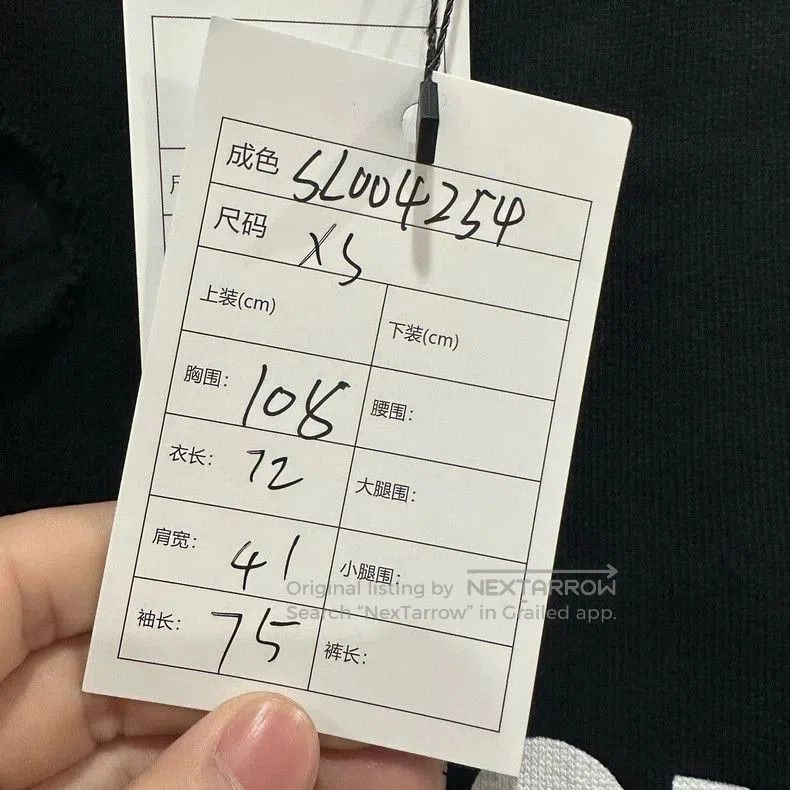 成色 SL004254
尺码 XS
上装(cm) 下装(cm)
胸围: 108 腰围:
衣长: 72 大腿围:
肩宽: 41 小腿围:
袖长: 75 裤长:
Original listing by NEXTARROW
Search “NexTarrow” in Grailed app.